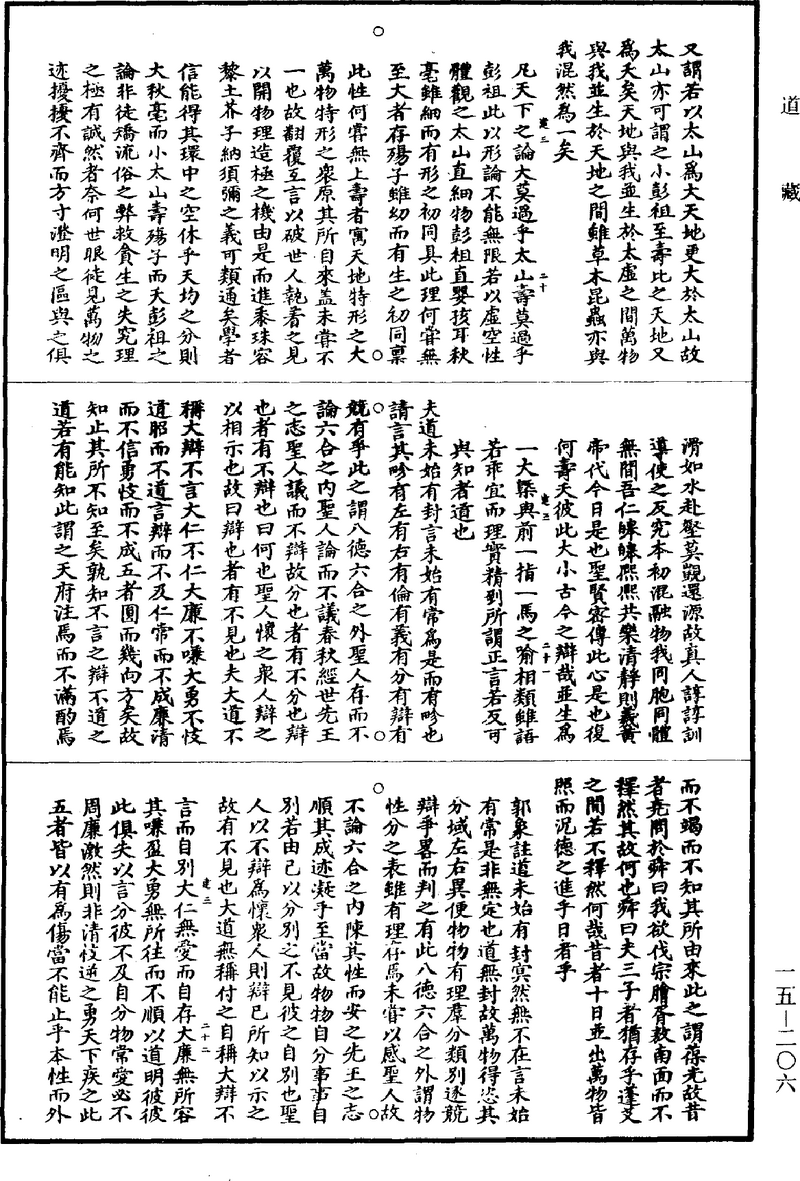 道藏
又謂若以太山爲大天地更大於太山故
太山亦可謂之小彭祖至壽比之天地又
爲夭矣天地與我並生於太虛之間萬物
與我並生於天地之間雖草木昆蟲亦與
我混然爲一矣
凡天下之論大莫過乎太山壽莫過乎
建三 二十
彭祖此以形論不能無限若以虛空性
體觀之太山直細物彭祖直嬰孩耳秋
毫雖細而有形之初同具此理何嘗無
至大者存殤子雖幼而有生之初同稟
此性何嘗無上壽者寓天地特形之大
萬物特形之衆原其所自來盖未嘗不
一也故翻覆互言以破世人執着之見
以開物理造極之機由是而進黍珠容
黎土芥子納須彌之義可類通矣學者
信能得其環中之空休乎天均之分則
大秋毫而小太山壽殤子而夭彭祖之
論非徒矯流俗之弊救貪生之失究理
之極有誠然者奈何世眼徒見萬物之
迹擾擾不齊而方寸澄明之區與之俱
滑如水赴壑莫觀還源故真人諄諄訓
導使之反究本初混融物我同胞同體
無間吾仁皞皞熙熙共樂清静則羲黄
帝代今日是也聖賢密傳此心是也復
何壽夭彼此大小古今之辯哉並生爲
一大槩與前一指一馬之喻相類雖語
建三 二十一
若乖宜而理實精到所謂正言若反可
與知者道也
夫道未始有封言未始有常爲是而有畛也
請言其畛有左有右有倫有義有分有辯有
競有爭此之謂八德六合之外聖人存而不
論六合之内聖人論而不議春秋經世先王
之志聖人議而不辯故分也者有不分也辯
也者有不辯也曰何也聖人懷之衆人辯之
以相示也故曰辯也者有不見也夫大道不
稱大辯不言大仁不仁大廉不嗛大勇不忮
道昭而不道言辯而不及仁常而不成廉清
而不信勇忮而不成五者圓而幾向方矣故
知止其所不知至矣孰知不言之辯不道之
道若有能知此謂之天府注焉而不滿酌焉
而不竭而不知其所由來此之謂葆光故昔
者堯問於舜曰我欲伐宗膾胥敖南面而不
釋然其故何也舜曰夫三子者猶存乎蓬艾
之間若不釋然何哉昔者十日並出萬物皆
照而況德之進乎日者乎
郭象註道未始有封冥然無不在言未始
有常是非無定也道無封故萬物得恣其
分域左右異便物物有理羣分類别逐競
辯爭畧而判之有此八德六合之外謂物
性分之表雖有理存焉未嘗以感聖人故
不論六合之内陳其性而安之先王之志
順其成迹凝乎至當故物物自分事事自
别若由己以分别之不見彼之自别也聖
人以不辯爲懷衆人則辯己所知以示之
故有不見也大道無稱付之自稱大辯不
言而自别大仁無愛而自存大廉無所容
建三 二十二
其嗛盈大勇無所往而不順以道明彼彼
此俱失以言分彼不及自分物常愛必不
周廉激然則非清忮逆之勇天下疾之此
五者皆以有爲傷當不能止乎本性而外
一五—二〇六